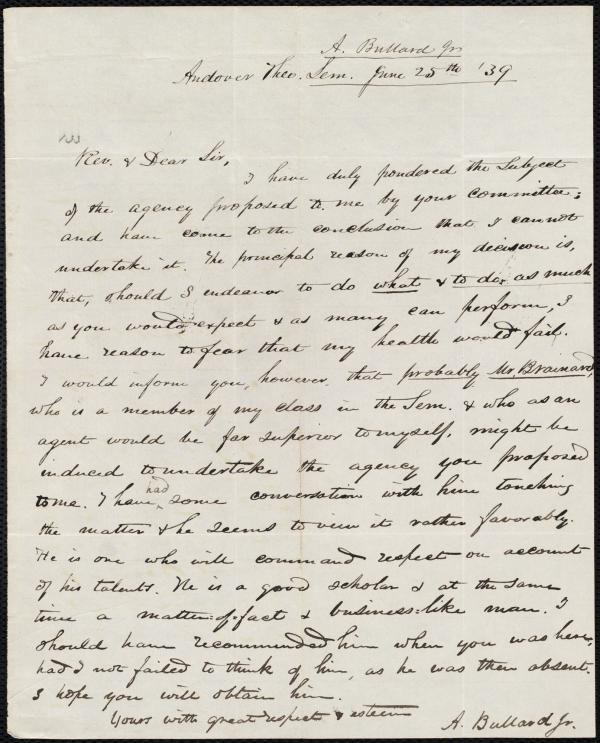 A. Bullard Jr
Andover Theo. Sem. June 25th '39
133
Rev. & Dear Sir,
I have duly pondered the subject
of the agency proposed to me by your committee;
and have come to the conclusion that I cannot
undertake it. The principal reason of my decision is,
that, should I endeavor to do what & to do as much
as you would expect & as many can perform, I
have reason to fear that my health would fail.
I would inform you, however, that probably Mr. Brainard,
who is a member of my class in the Sem. & who as an
agent would be far superior to myself, might be
induced to undertake the agency you proposed
to me. I have had some conversation with him touching
the matter & he seems to view it rather favorably.
He is one who will command respect on account
of his talents. He is a good scholar & at the same
time a matter-of-fact & business-like man. I
should have recommended him when you was here,
had I not failed to think of him, as he was then absent.
I hope you will obtain him.
Yours with great respect & esteem
A. Bullard Jr.